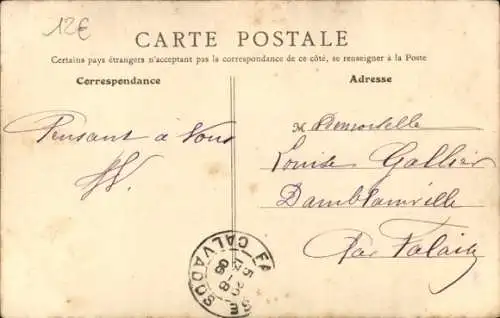 12€
CARTE POSTALE
Certains pays étrangers n'acceptant pas la correspondance de ce côté, se renseigner à la Poste
Correspondance
Adresse
Pensant à Vous
M Demoiselle
Louise Gallier
Damblainville
Par Falaise
CALVADOS